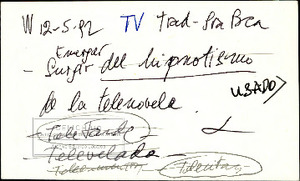 W 12-5-92 TV Trad-Sra Bca
Emerger
- Surgir del hipnotismo
de la telenovela
USADO>
- TeleTarde
- Televelada